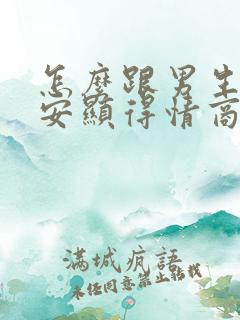 怎麼跟男生
安顯得情商
滿城瘋語
未經同意禁止轉載